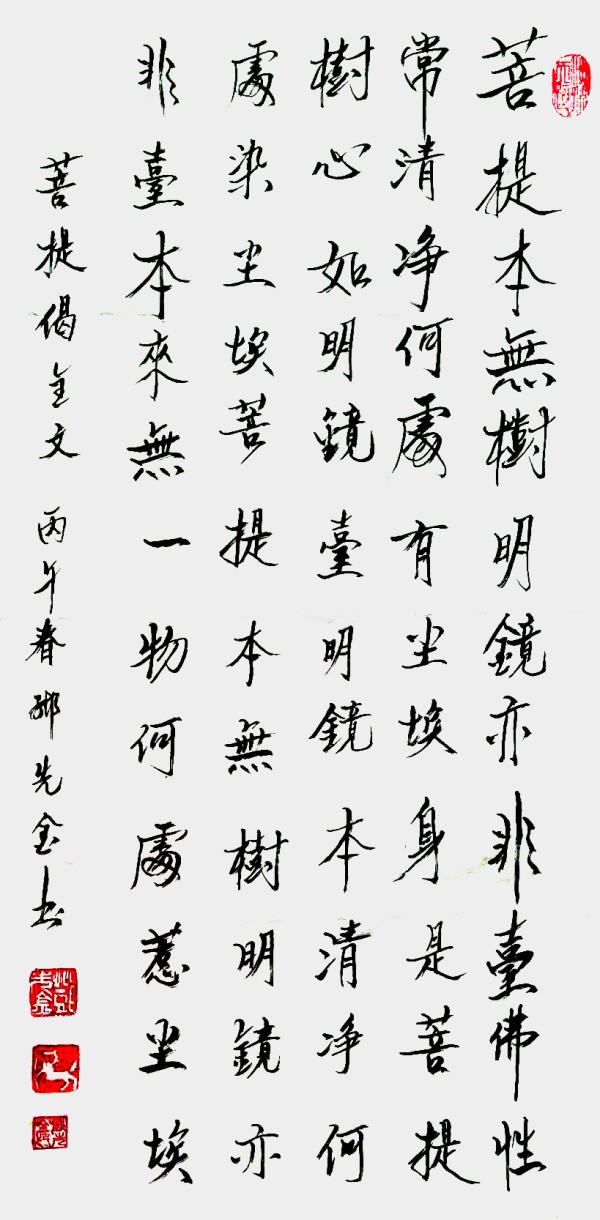 菩提本無樹明鏡亦非臺佛性
常清净何處有尘埃身是菩提
樹心如明鏡臺明鏡本清净何
處染尘埃菩提本無樹明鏡亦
非臺本來無一物何處惹尘埃
菩提偈全文 丙午春 先金书